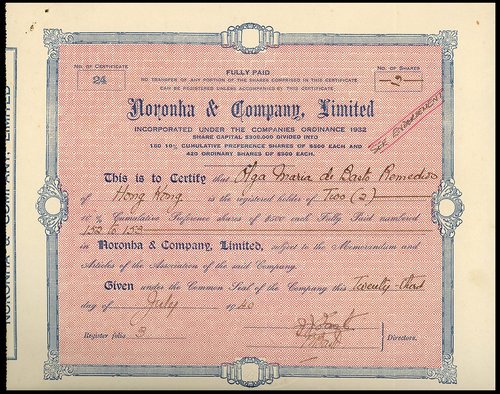 No. OF CERTIFICATE
24
No. OF SHARES
2
FULLY PAID
NO TRANSFER OF ANY PORTION OF THE SHARES COMPRISED IN THIS CERTIFICATE
CAN BE REGISTERED UNLESS ACCOMPANIED BY THIS CERTIFICATE
Noronha & Company, Limited
INCORPORATED UNDER THE COMPANIES ORDINANCE 1932
SHARE CAPITAL $300,000 DIVIDED INTO
180 10% CUMULATIVE PREFERENCE SHARES OF $500 EACH AND
420 ORDINARY SHARES OF $500 EACH.
SEE ENDORSEMENT
This is to Certify that Olga Maria de Basto Remedios
of Hong Kong is the registered holder of Two (2)
10% Cumulative Preference shares of $500 each Fully Paid numbered
152 to 153
in Noronha & Company, Limited, subject to the Memorandum and
Articles of the Association of the said Company.
Given under the Common Seal of the Company this Twenty third
day of July 1940
Register folio 3
Directors.
NORONHA & COMPANY, LIMITED